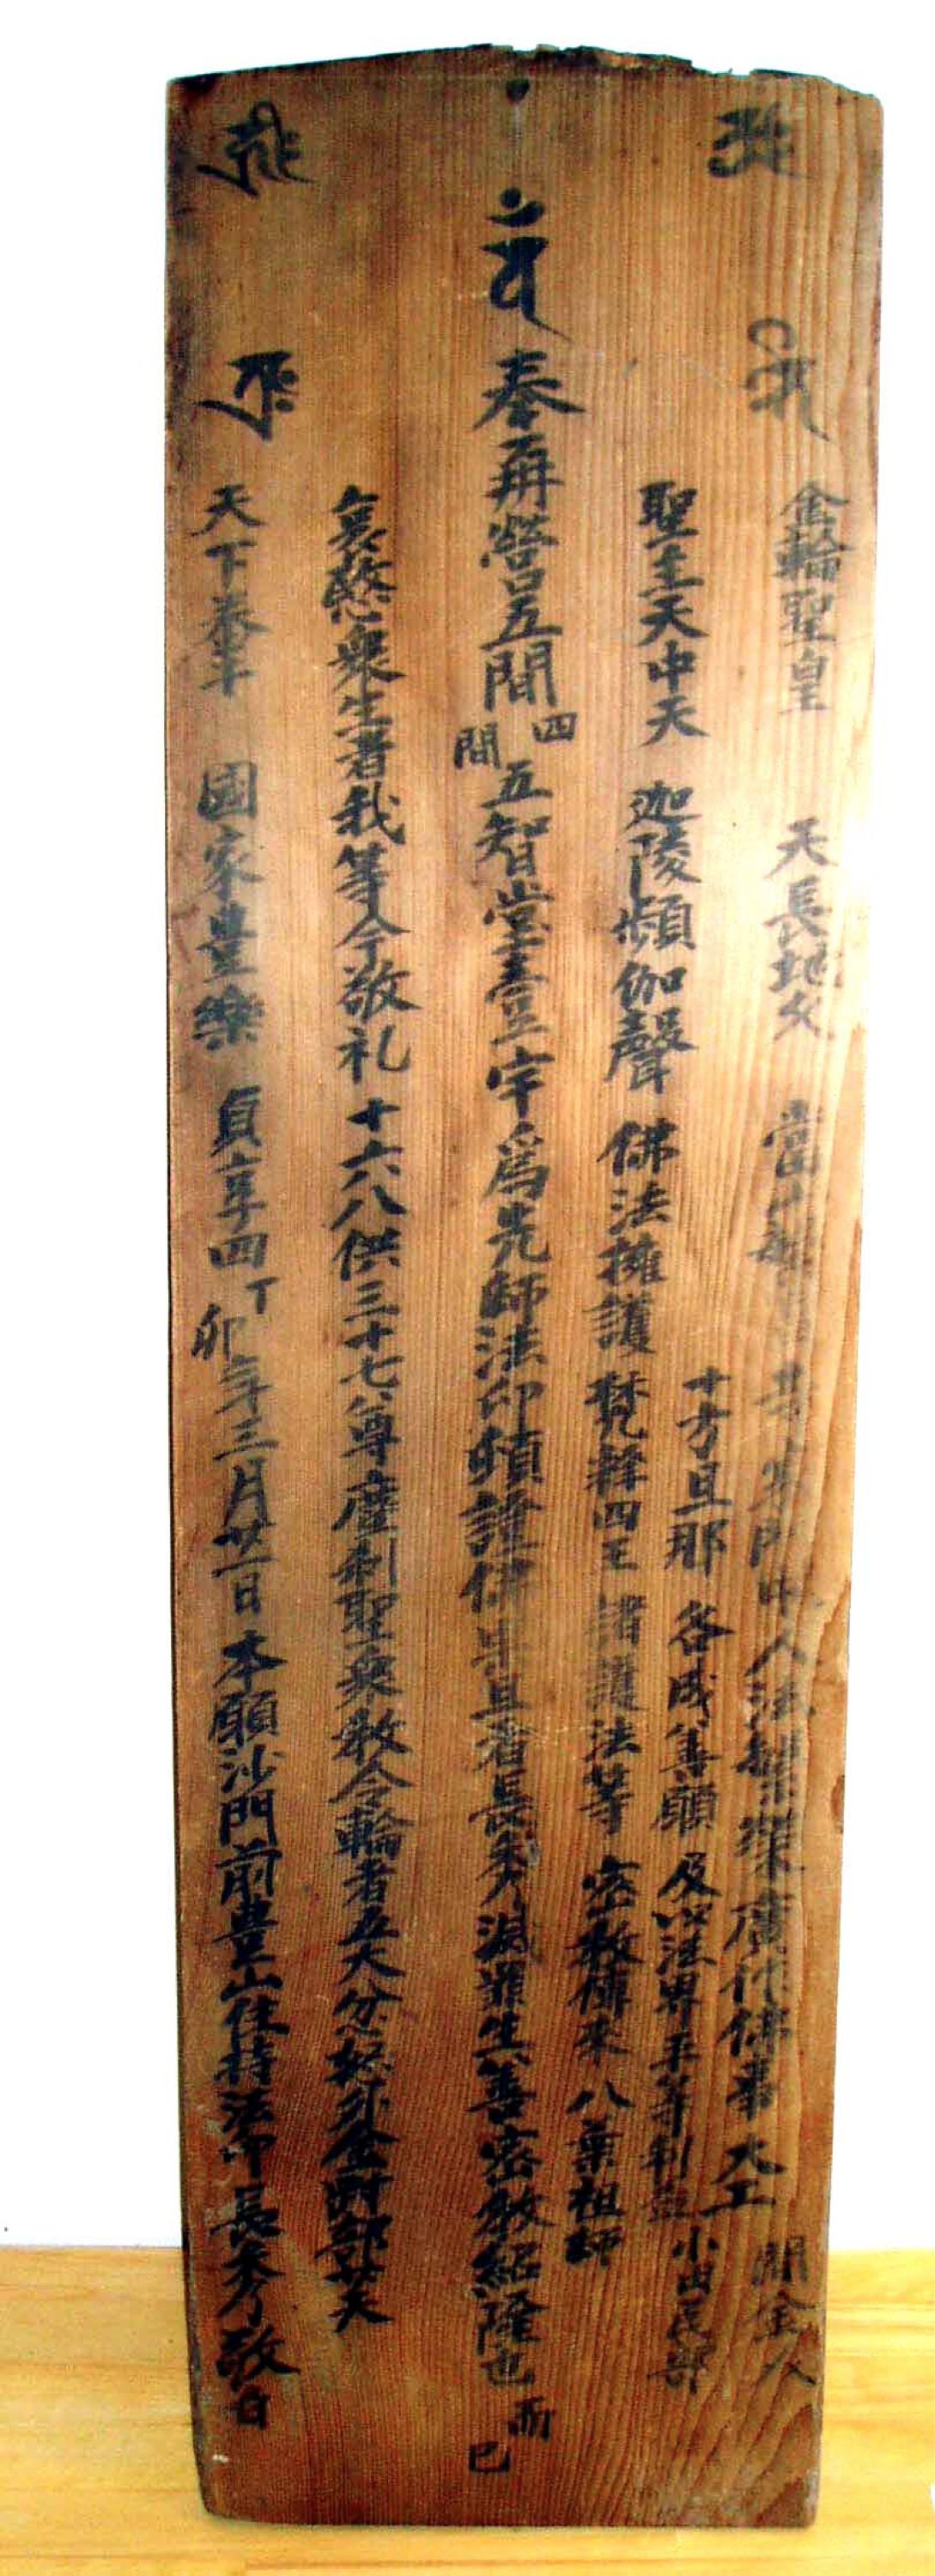 金輪聖皇 天長地久 當山 人法繁榮廣作佛事 大工
十方旦那 各成善願 及以法界平等利益 小田民部
聖主天中天 迦陵頻伽聲 佛法擁護 梵釋四王 諸護法等 密教傳來 八葉祖師
奉再營五間四間五智堂壹宇為先師法印頼證 長秀滅罪生善密教紹隆也而已
哀愍衆生者我等今敬礼 十六八供三十七尊塵刹聖衆教令輪者五大分怒 金剛部廿天
天下泰平 國家豊樂 貞享四丁卯年三月廿一日 本願沙門前豊山住持法印長秀敬白